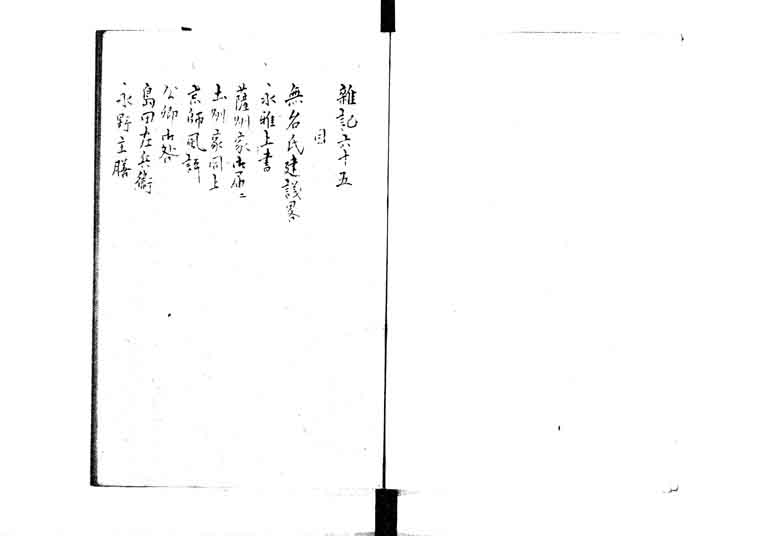 雜記六十五
目
無名氏建議畧
永雅上書
薩州家御届二
土州家同上
京師風評
公卿御咎
島田左兵衛
永野主膳